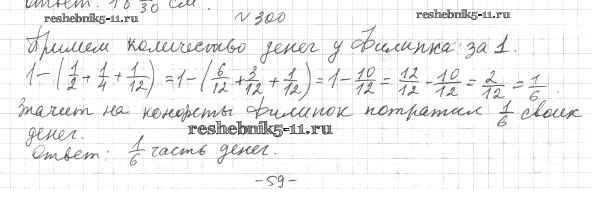 Ответ: 18 /30 см.
№ 300
reshebnik5-11.ru reshebnik5-11.ru
Примем количество денег у Филипка за 1.
1-(1/2+1/4+1/12)=1-(6/12+3/12+1/12)=1-10/12=12/12-10/12=2/12=1/6.
Значит на конфеты Филипок потратил 1/6 своих
денег.
reshebnik5-11.ru
Ответ: 1/6 часть денег.
-59-